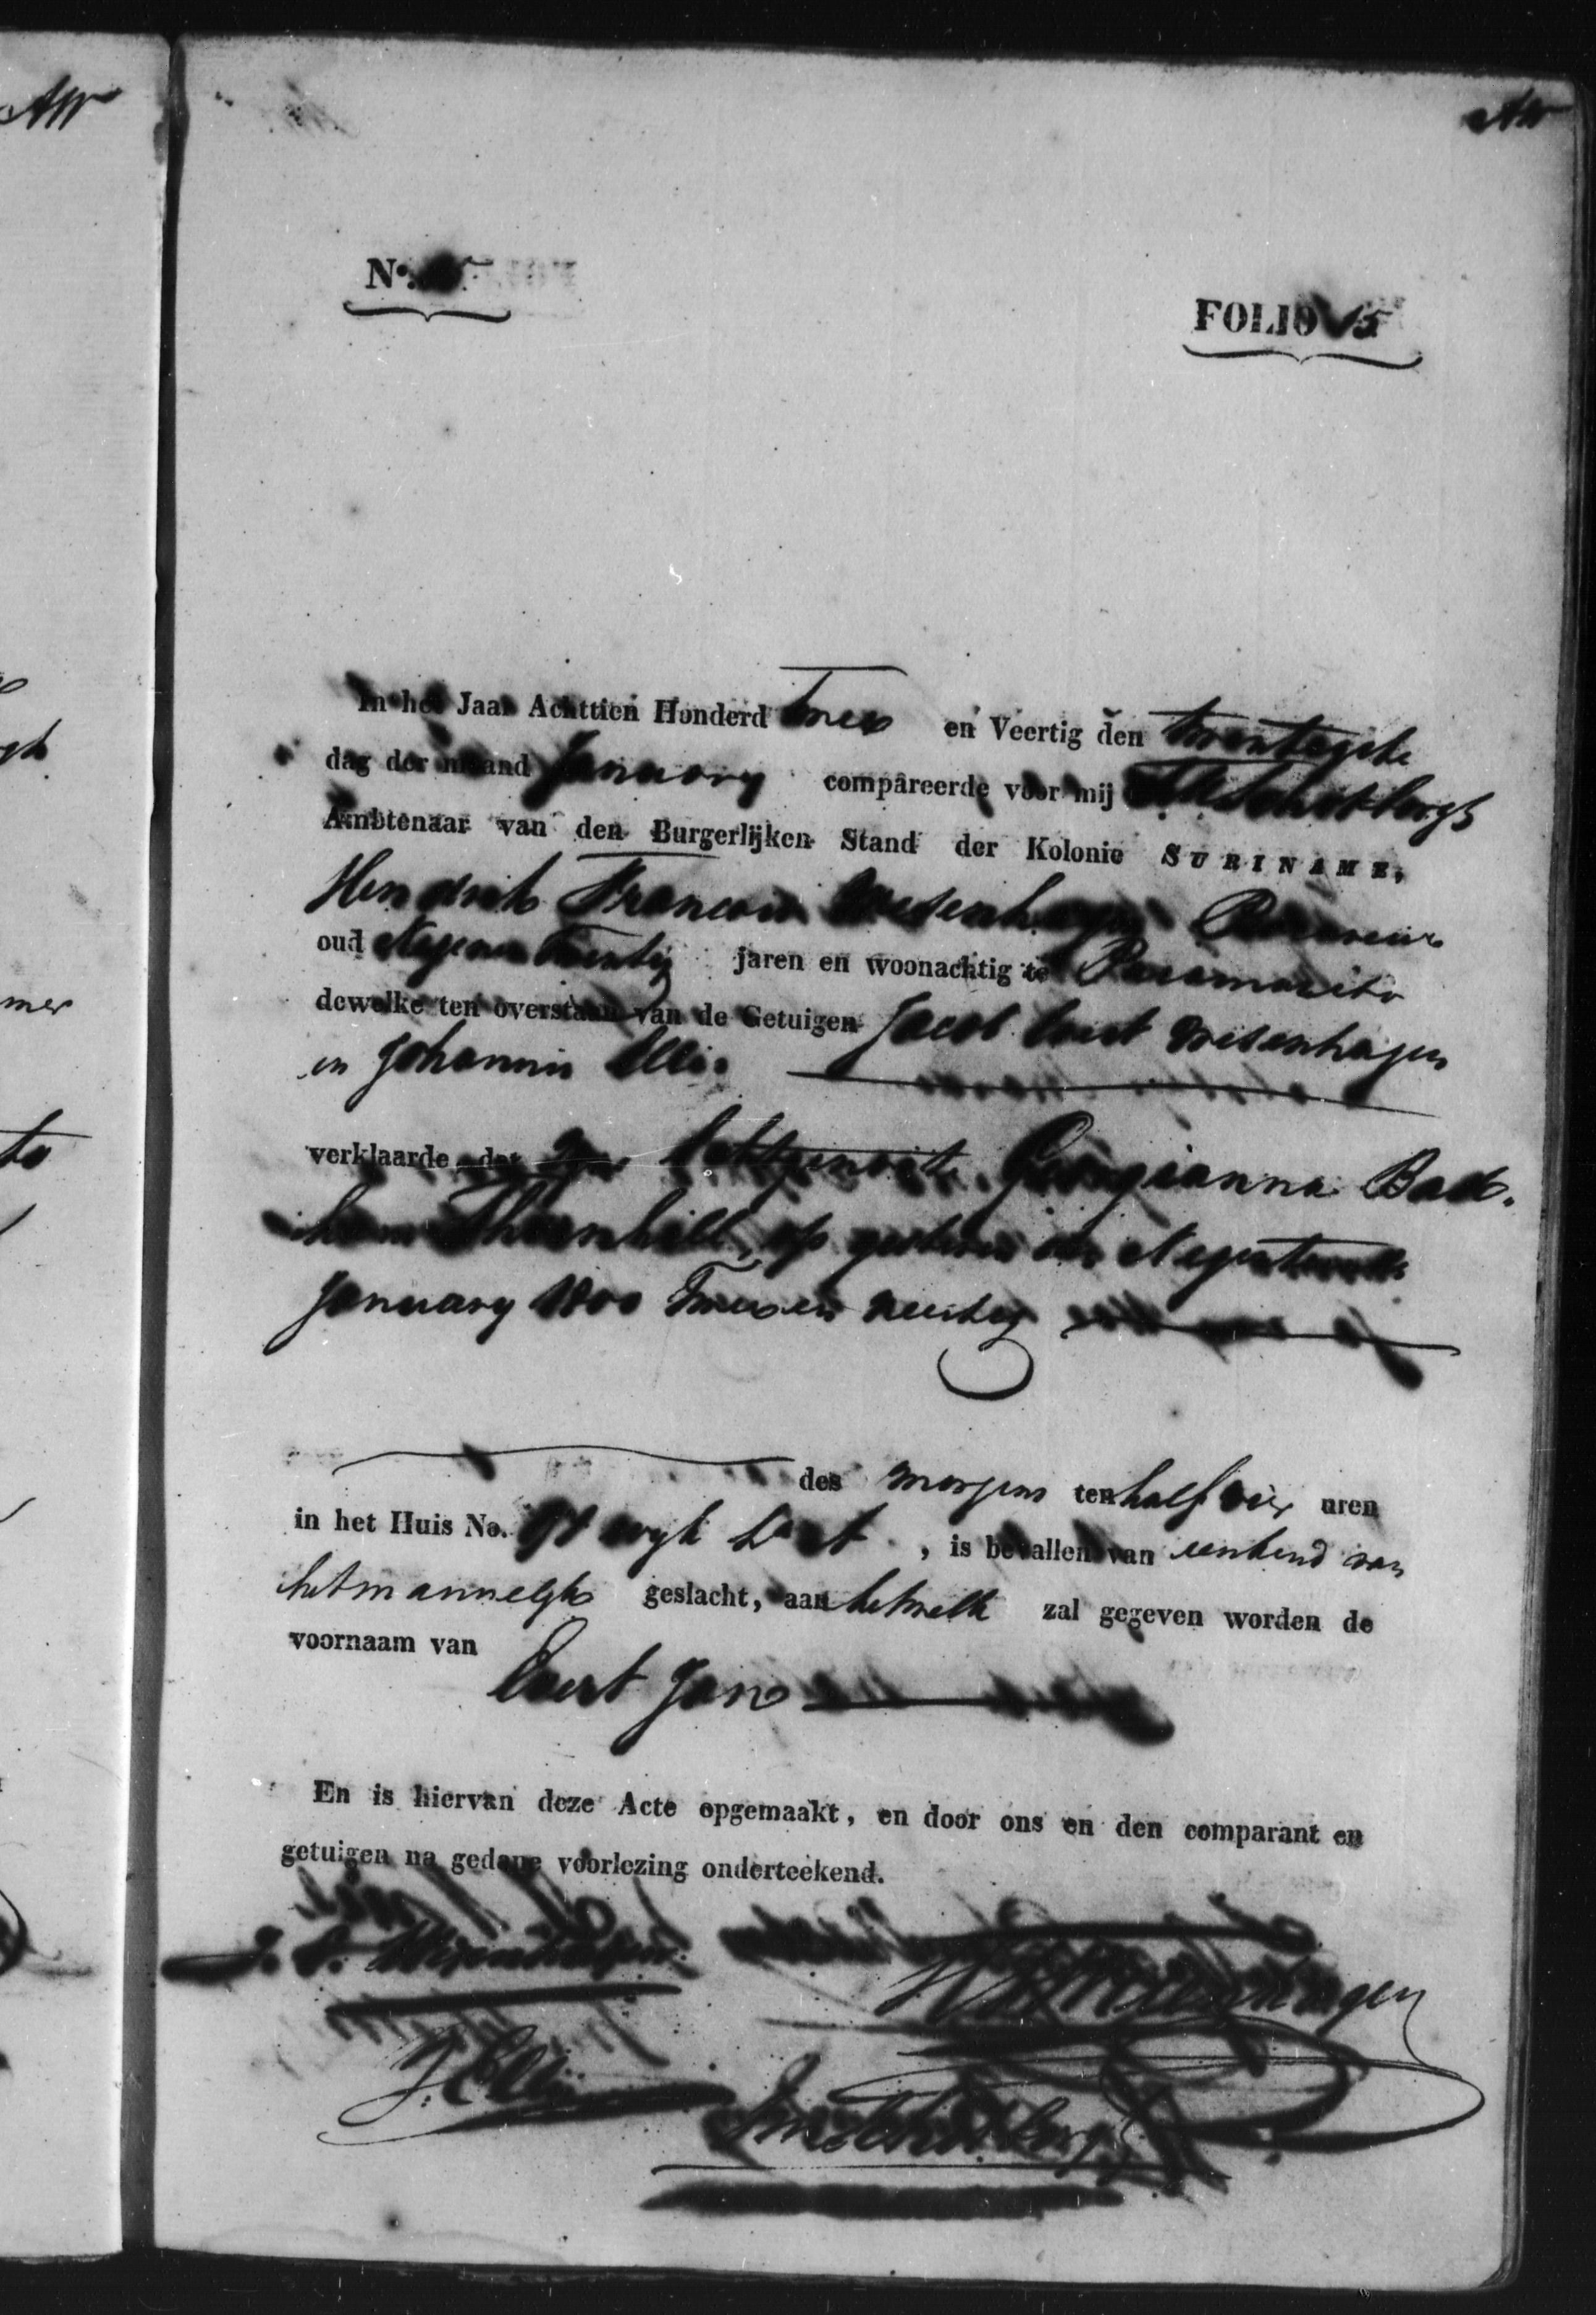 AW
AW
No. 15
FOLIO 15
In het Jaar Achttien Honderd Twee en Veertig den twentegste
dag der maand January compareerde voor mij Schotborgh
Ambtenaar van den Burgerlijken Stand der Kolonie SURINAME,
Hendrik Francois Wesenhagen
oud Negen en Twentig jaren en woonachtig te Paramaribo
dewelke ten overstaan van de Getuigen Jacob Evert Wesenhagen
en Johannis Ellis
verklaarde dat Zyn Echtgenoote Georgianna Bad
ham Thornhill, op gisteren den Negentiende
January 1800 Twee en veertig
des morgens ten half vier uren
in het Huis No. wyk Lt , is bevallen van een kind van
het mannelyk geslacht, aan hetwelk zal gegeven worden de
voornaam van
Evert Jan
En is hiervan deze Acte opgemaakt, en door ons en den comparant en
getuigen na gedane voorlezing onderteekend.
J. E. Wesenhagen
H F Wesenhagen
J. Ellis
Schotborgh